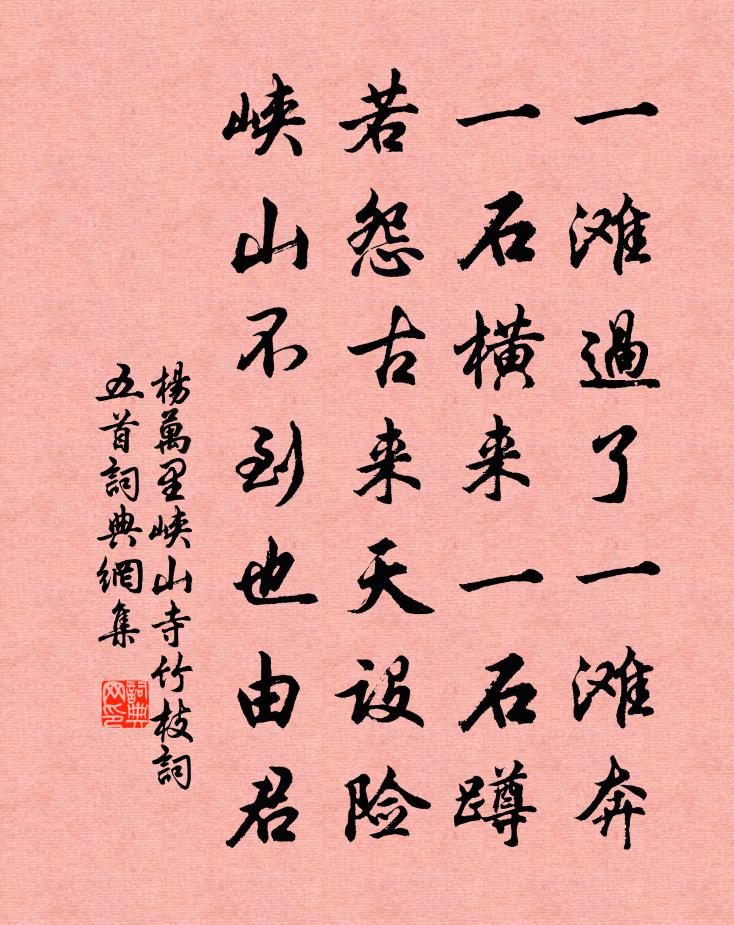 一滩過了一滩奔
一石横来一石蹲
若怨古来天设险
峡山不到也由君
楊萬里峡山寺竹枝詞
五首詞典網集
詞典网印